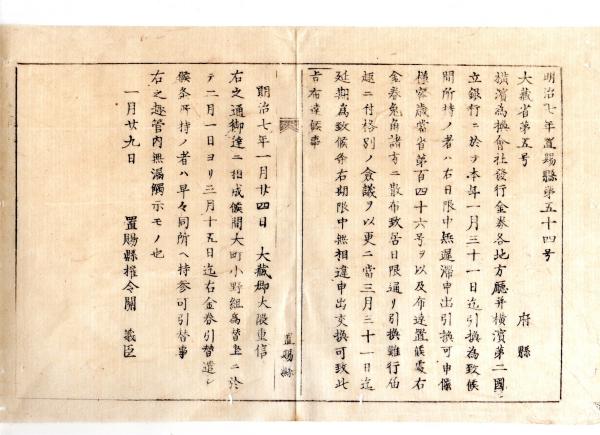 明治七年置賜縣第五十四号
大蔵省第五号
府縣
横濱為換會社發行金券各地方廳并横濱第二國
立銀行ニ於テ本年一月三十一日迄引換為致候
間所持ノ者ハ右日限中無遅滞申出引換可申儀
様客歳當省第百四十六号ヲ以及布達置候處右
金券兎角諸方ニ散布致居日限通リ引換難行伯
趣ニ付格別ノ僉議ヲ以更ニ當三月三十一日迄
延期為致候条右期限中無相違申出交換可致此
旨布達候事
置賜縣
明治七年一月廿四日 大蔵卿大隈重信
右之通御達ニ相成候間大町小野組為替座ニ於
テ二月一日ヨリ三月十五日迄右金券引替遣シ
候条所持ノ者ハ早々同所ヘ持参可引替事
右之趣管内無漏觸示モノ也
一月廿九日
置賜縣権令關 義臣